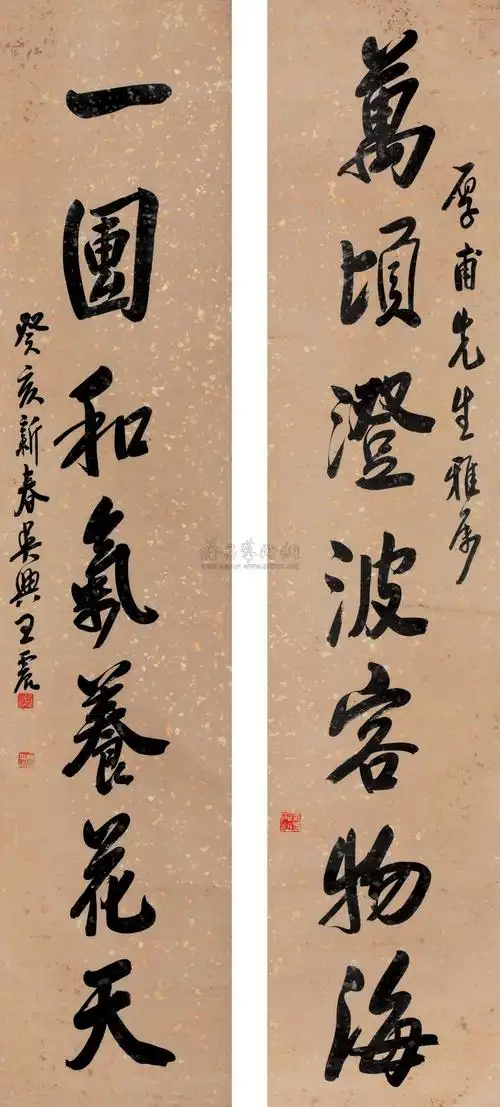 厚甫先生雅属
萬頃澄波容物海
一團和氣養花天
癸亥新春吳興王震